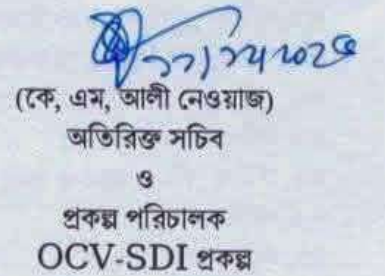 (কে, এম, আলী নেওয়াজ)
অতিরিক্ত সচিব
ও
প্রকল্প পরিচালক
OCV-SDI প্রকল্প